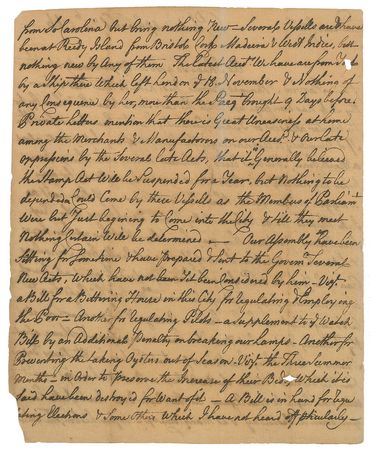 from So Carolina but bring nothing New — Several Vessells are & have
been at Reedy Island from Bristol Cork Madeira & West Indies, but
nothing new by Any of them The Latest Acct We have are from York
by a Ship there Which left London ye 18 November & Nothing of
any Consequence by her, more than the Pacqt brought 9 Days before.
Private Letters mention that there is Great Uneasiness at home
among the Merchants & Manufactorors on our Acct & Our Late
oppressions by the Several Late Acts, that it's Generally believed
the Stamp Act Will be Suspended for a Year, but Nothing to be
depended on Could Come by these Vessells as the Members of Parliamt
Were but Just beginning to Come into the City & till they meet
Nothing Certain Will be determined — Our Assembly have been
Sitting for Sometime & have prepared & sent to the Governr Several
New Acts, Which have not been Yet been Considered by him — Vizt
a Bill for a Bettering House in this City for regulating & Employ ing
the Poor — Another for regulating Pilots — a Supplement to ye Watch
Bill by an Additional Penalty on breaking our Lamps — Another for
Preventing the taking Oysters out of Season Vizt the Three Summer
Months — in Order to preserve the Increase of their Beds Which it is
Said have been destroy'd for Want of it — A Bill is in hand for regu
lating Elections & Some Others Which I have not heard off pticularly —